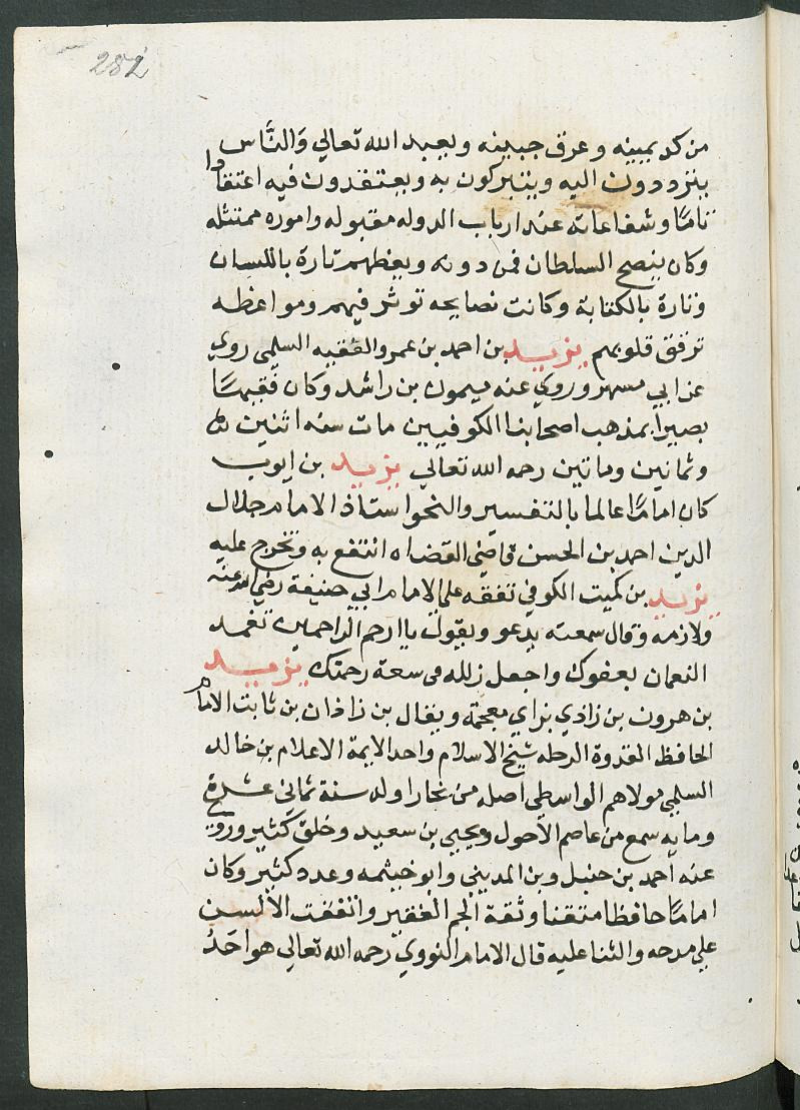 282
من كد يمينه وعرق جبينه ويعبد الله تعالي والنَّاس
يترددون اليه ويتبركون به ويعتقدون فيه اعتقادا
تامًا وشفاعاته عند ارباب الدوله مقبوله واموره ممتثله
وكان ينصح السلطان فمن دونه ويعظهم تارة باللسان
وتارة بالكتابة وكانت نصايحه توثر فيهم ومواعظه
ترفق قلوبهم يزيد بن احمد بن عمرو الفقيه السلمي روي
عن ابي مسهر وروي عنه ميمون بن راشد وكان فقيهًا
بصيرا بمذهب اصحابنا الكوفيين مات سنه اثنين
وثمانين وماتين رحمه الله تعالي يزيد بن ايوب
كان امامًا عالما بالتفسير والنحو استاذ الامام جلال
الدين احمد بن الحسن قاضي القضاه انتفع به وتخرج عليه
يزيد بن كميت الكوفي تفقه علي الامام ابي حنيفة رضي الله عنه
ولازمه وقال سمعته يدعو ويقول يا ارحم الراحمين تغمد
النعمان بعفوك واجعل زلله في سعة رحمتك يزيد
بن هرون بن زاذي بزاي معجمة ويقال بن زاذان بن ثابت الامام
الحافظ القدوة الرحله شيخ الاسلام واحد الايمة الاعلام بن خالد
السلمي مولاهم الواسطي اصله من بخارا ولد سنة ثماني عشرة
ومايه سمع من عاصم الاحول ويحيي بن سعيد وخلق كثير وروي
عنه احمد بن حنبل وبن المديني وابو خيثمه وعدد كثير وكان
امامًا حافظا متقنا وثقة الجم الغفير واتفقت الالسن
علي مدحه والثنا عليه قال الامام النووي رحمه الله تعالي هو احَدُ